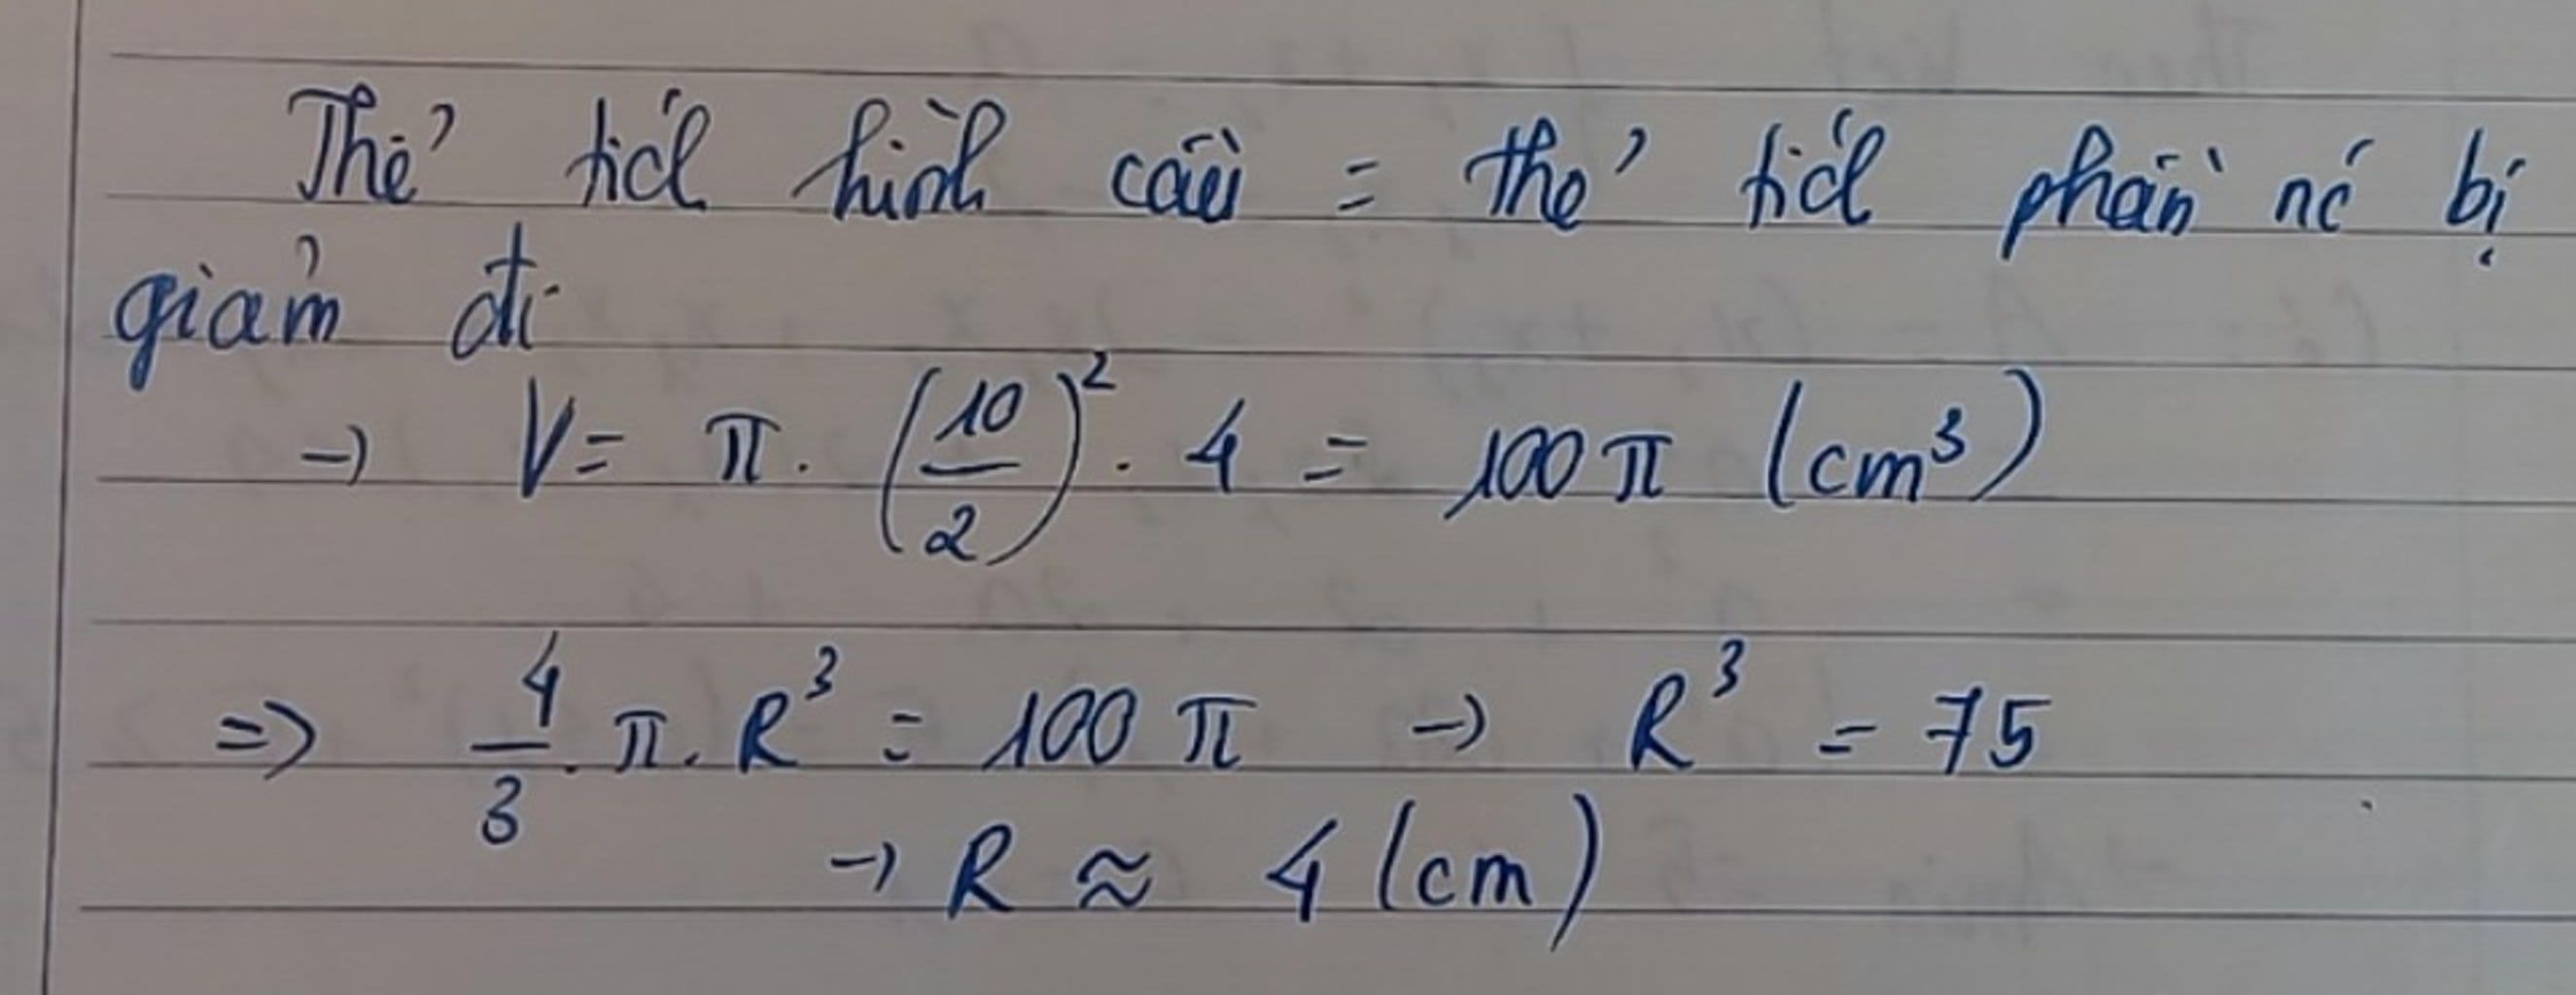 Thể tích hình cầu = thể tích phần nc bị
giảm đi
→ V = π . (10/2)² . 4 = 100 π (cm³)
⇒ 4/3 . π . R³ = 100 π → R³ = 75
→ R ≈ 4 (cm)